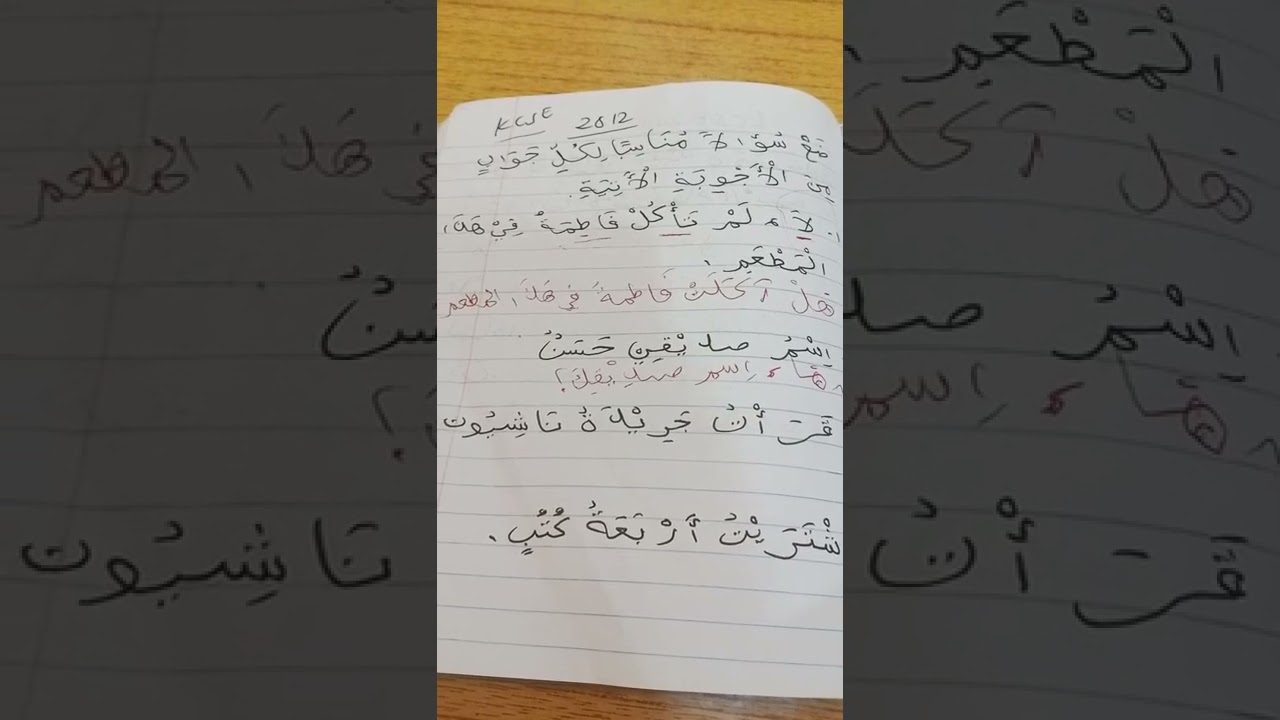 KCSE 2012
ضَعْ سُؤَالاً مُنَاسِبًا لِكُلِّ جَوَابٍ
مِنَ الْأَجْوِبَةِ الْأَتِيَةِ.
١. لاَ، لَمْ تَأْكُلْ فَاطِمَةُ فِيْ هَذَا
الْمَطْعَمِ.
هَلْ آكَلَتْ فَاطِمَةُ فِي هَذَا المطعم
اِسْمُ صَدِيْقِي حَسَنٌ
مَا اِسم صَدِيْقِكَ؟
قَرَأْتُ جَرِيْدَةُ تَاشِيُون
شْتَرَيْتُ أَرْبَعَةُ كُتُبٍ.